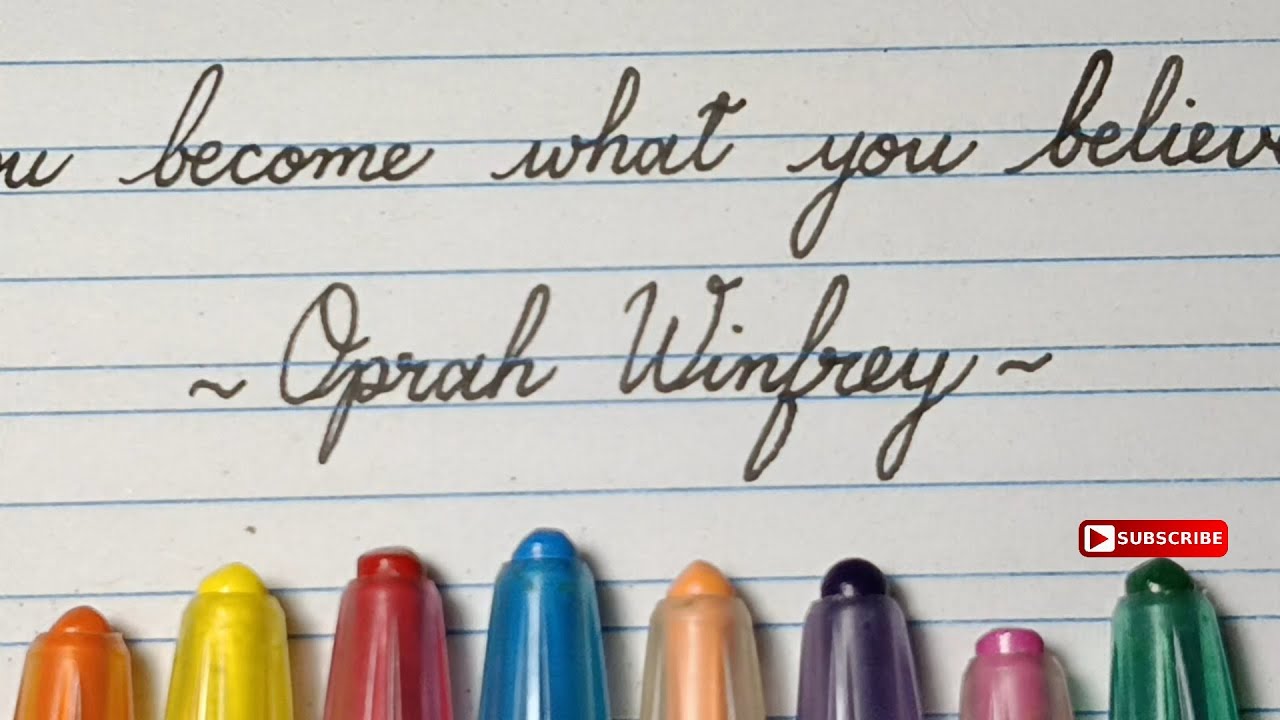 ou become what you believe
~ Oprah Winfrey ~
SUBSCRIBE